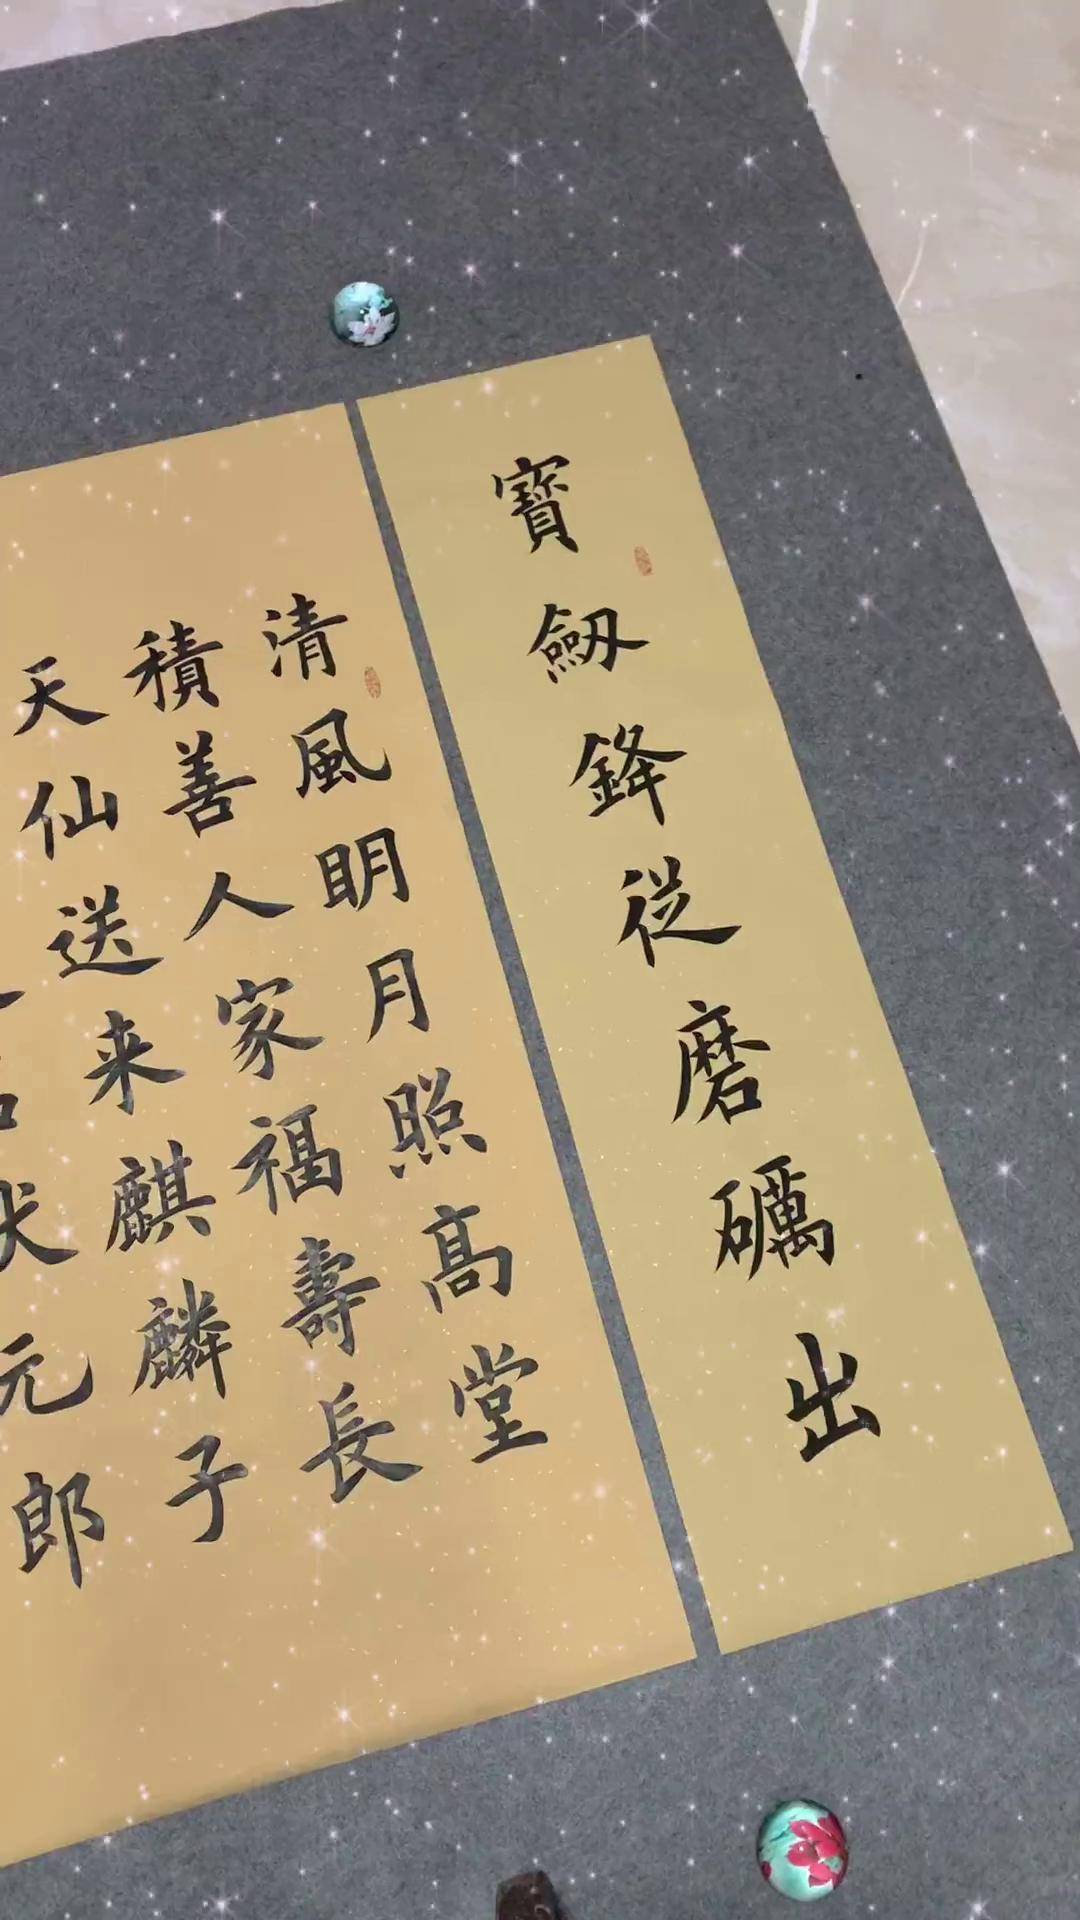 寶劔鋒從磨礪出
清風明月照高堂
積善人家福壽長
天仙送来麒麟子
状元郎